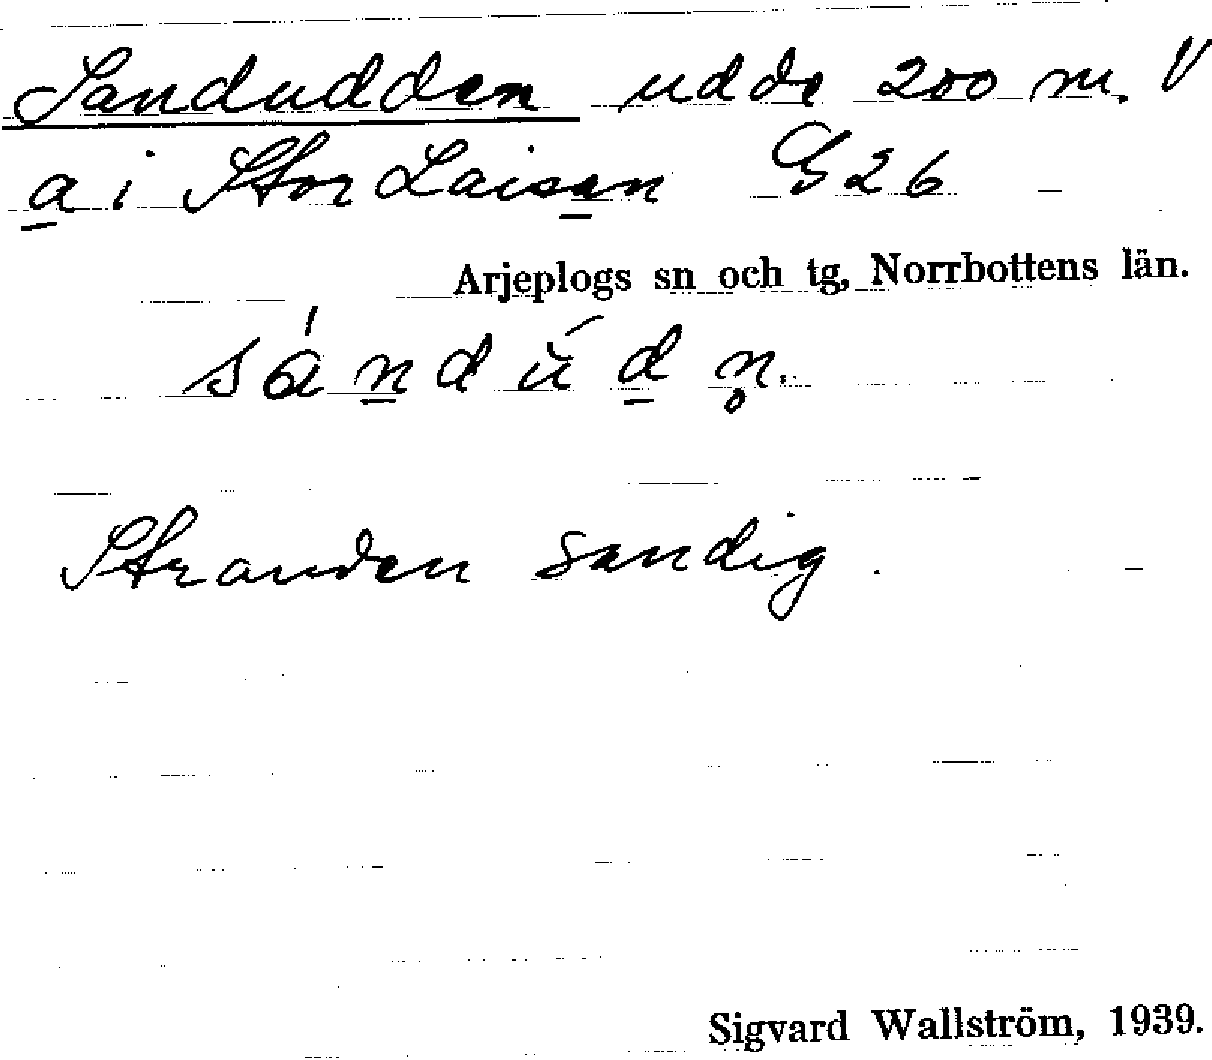 Sandudden udde 200 m. V
a i Stor Laisan G 26
Arjeplogs sn och tg, Norrbottens län.
sándúdn̥.
Stranden sandig.
Sigvard Wallström, 1939.